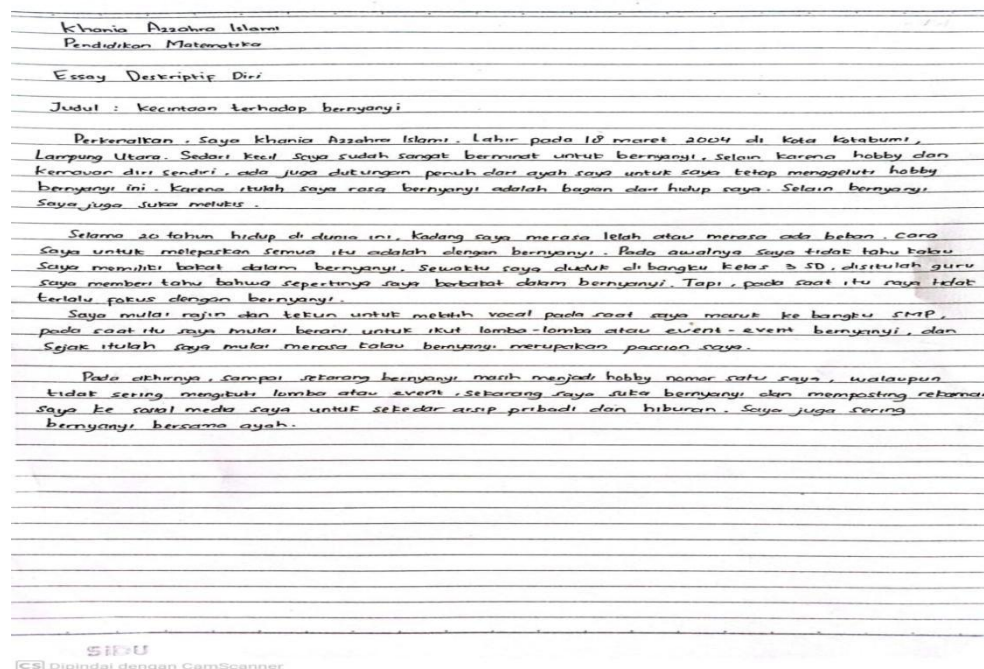 Khania Azzahra Islami
Pendidikan Matematika
Essay Deskriptif Diri
Judul : Kecintaan terhadap bernyanyi
Perkenalkan, Saya Khania Azzahra Islami. Lahir pada 18 maret 2004 di Kota Kotabumi,
Lampung Utara. Sedari kecil saya sudah sangat berminat untuk bernyanyi, selain karena hobby dan
Kemauan diri sendiri, ada juga dukungan penuh dari ayah saya untuk saya tetap menggeluti hobby
bernyanyi ini. Karena itulah saya rasa bernyanyi adalah bagian dari hidup saya. Selain bernyanyi
Saya juga suka melukis.
Selama 20 tahun hidup di dunia ini, Kadang saya merasa lelah atau merasa ada beban. Cara
Saya untuk melepaskan semua itu adalah dengan bernyanyi. Pada awalnya saya tidak tahu kalau
Saya memiliki bakat dalam bernyanyi. Sewaktu saya duduk di bangku kelas 3 SD, disitulah guru
saya memberi tahu bahwa sepertinya saya berbakat dalam bernyanyi. Tapi, pada saat itu saya tidak
terlalu fokus dengan bernyanyi.
Saya mulai rajin dan tekun untuk melatih vocal pada saat saya masuk ke bangku SMP,
pada saat itu saya mulai berani untuk ikut lomba-lomba atau event-event bernyanyi, dan
Sejak itulah saya mulai merasa kalau bernyanyi merupakan passion saya.
Pada akhirnya, sampai sekarang bernyanyi masih menjadi hobby nomor satu saya, walaupun
tidak sering mengikuti lomba atau event, sekarang saya suka bernyanyi dan memposting rekaman
saya ke sosial media saya untuk sekedar arsip pribadi dan hiburan. Saya juga sering
bernyanyi bersama ayah.
SIDU
CS Dipindai dengan CamScanner